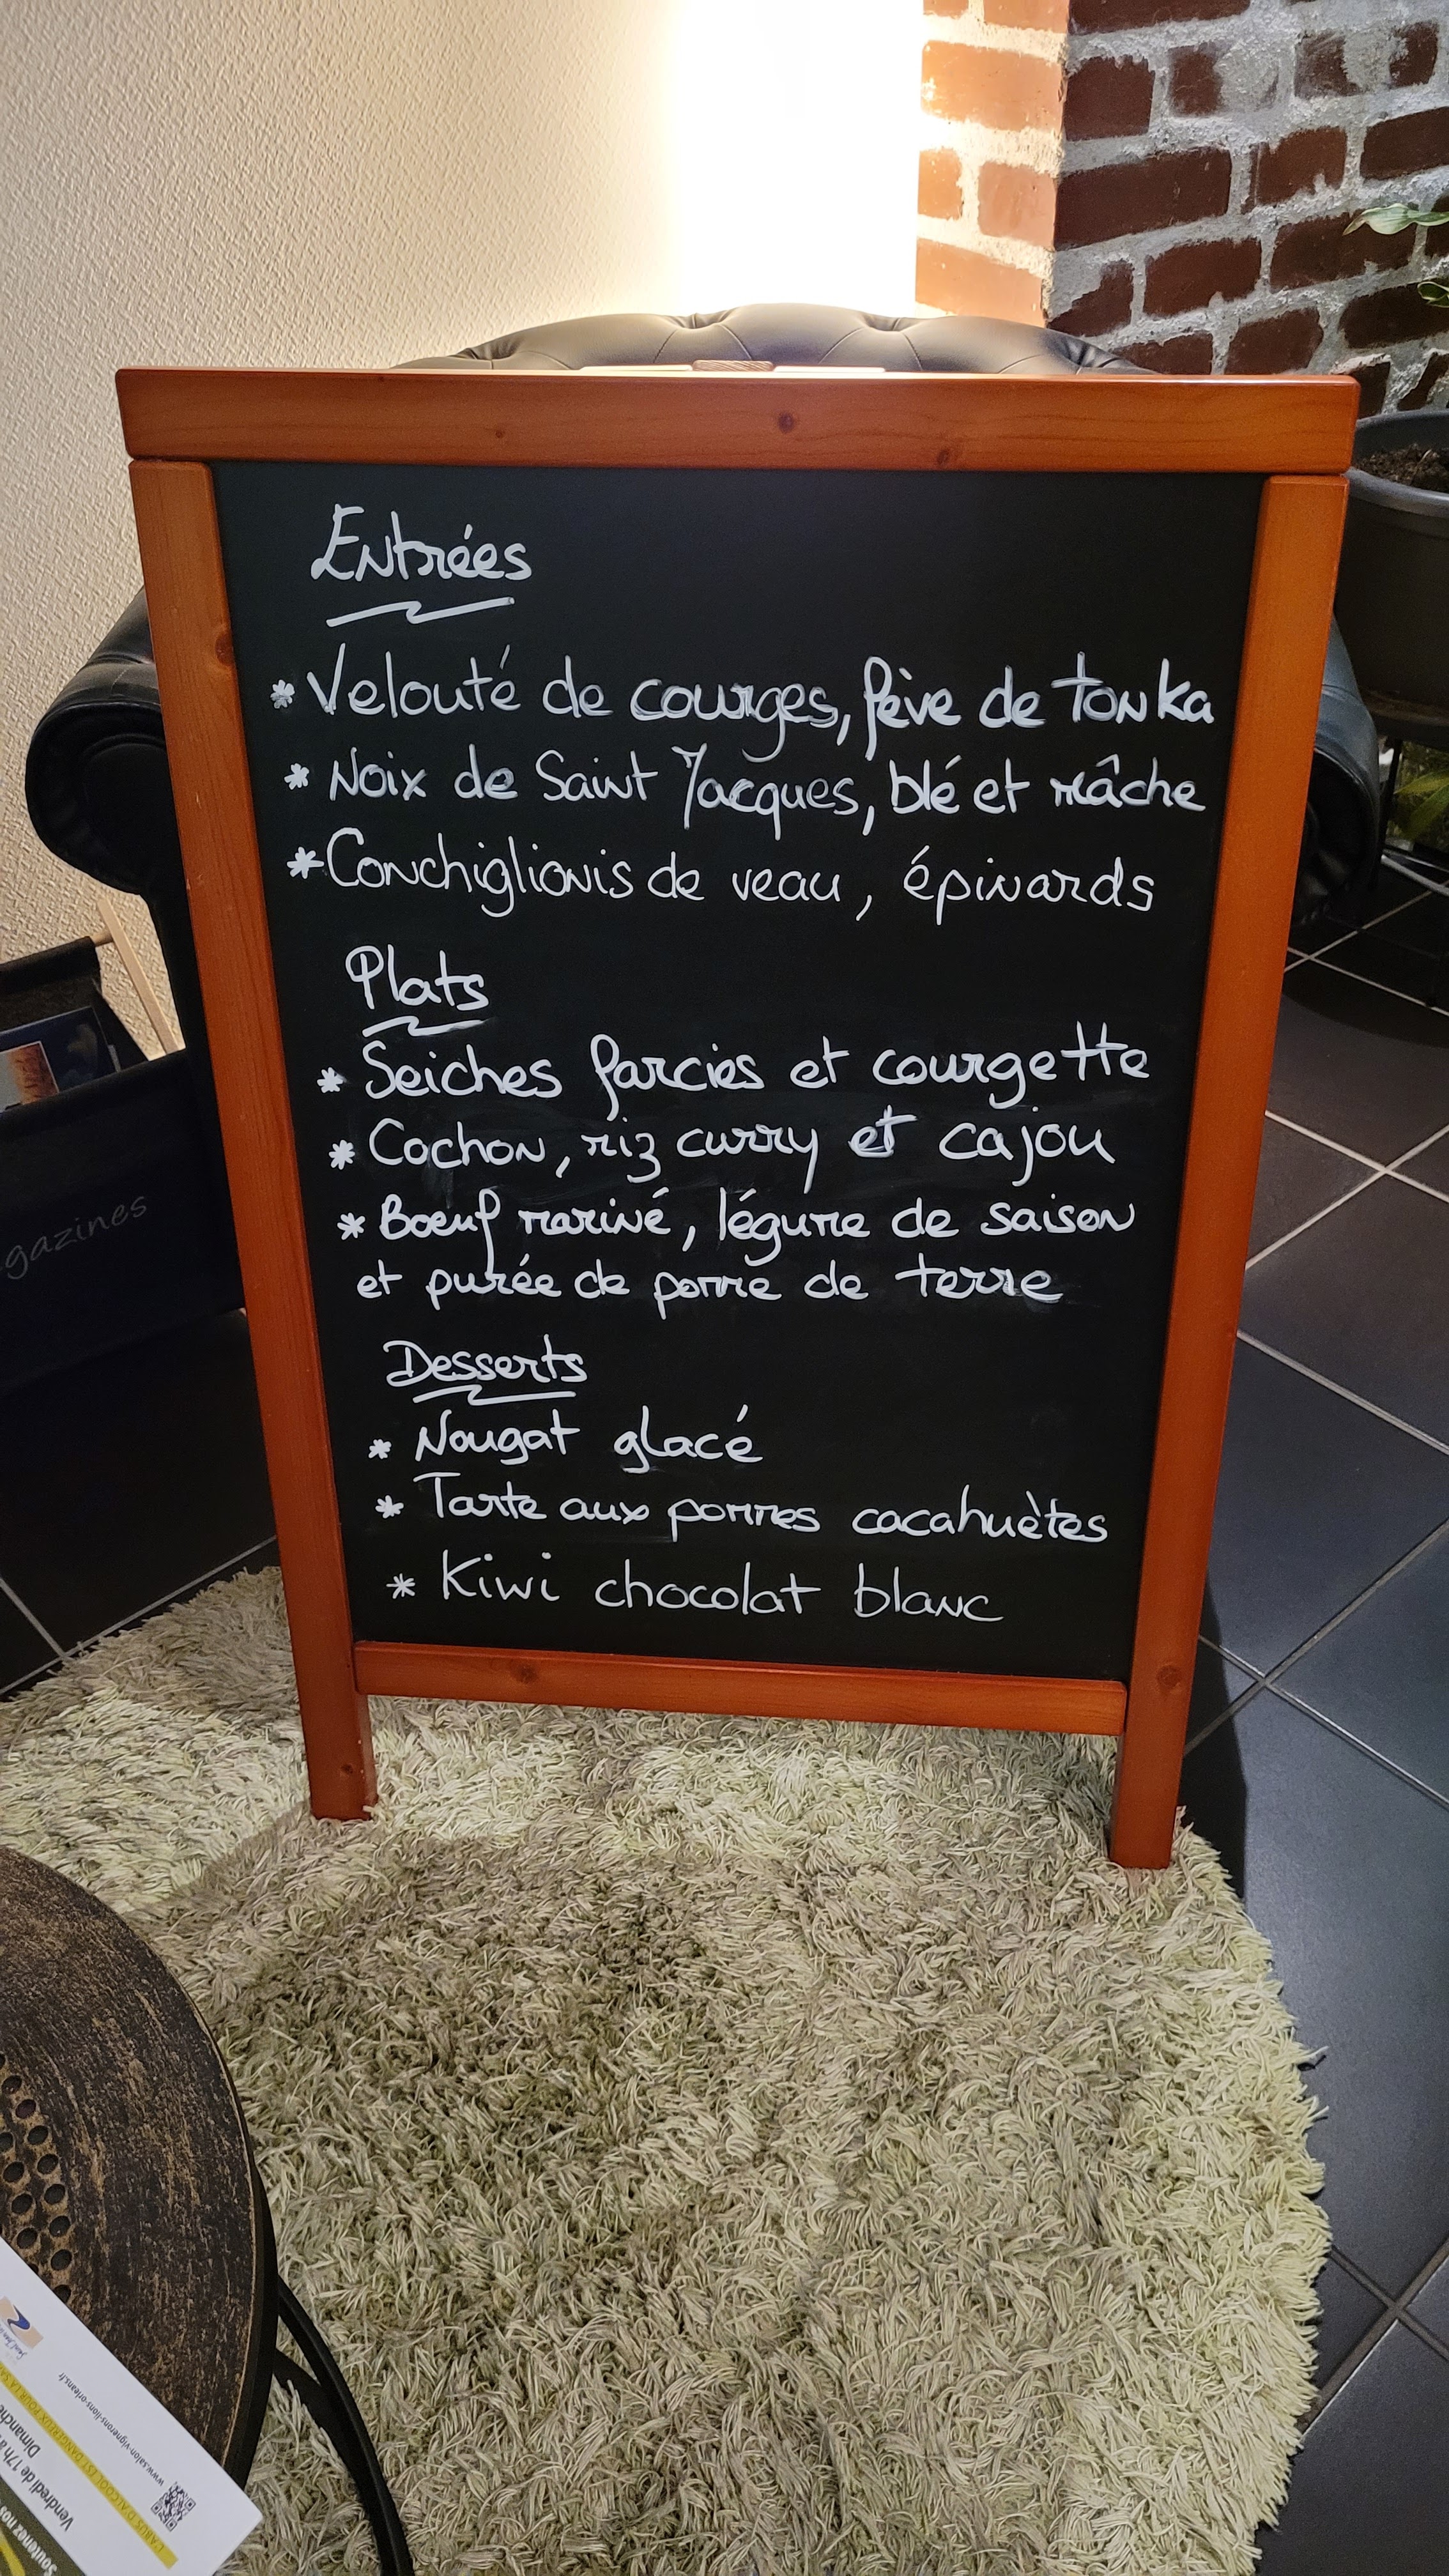 Entrées
* Velouté de courges, fève de Tonka
* Noix de Saint Jacques, blé et mâche
* Conchiglionis de veau, épinards
Plats
* Seiches farcies et courgette
* Cochon, riz curry et cajou
* Boeuf mariné, légume de saison
et purée de pomme de terre
Desserts
* Nougat glacé
* Tarte aux pommes cacahuètes
* Kiwi chocolat blanc
gazines
www.salon-vignerons-lions-orleans.fr
L'ABUS D'ALCOOL EST DANGEREUX POUR LA
Vendredi de 17h à
Dimanche
Soutenez nos